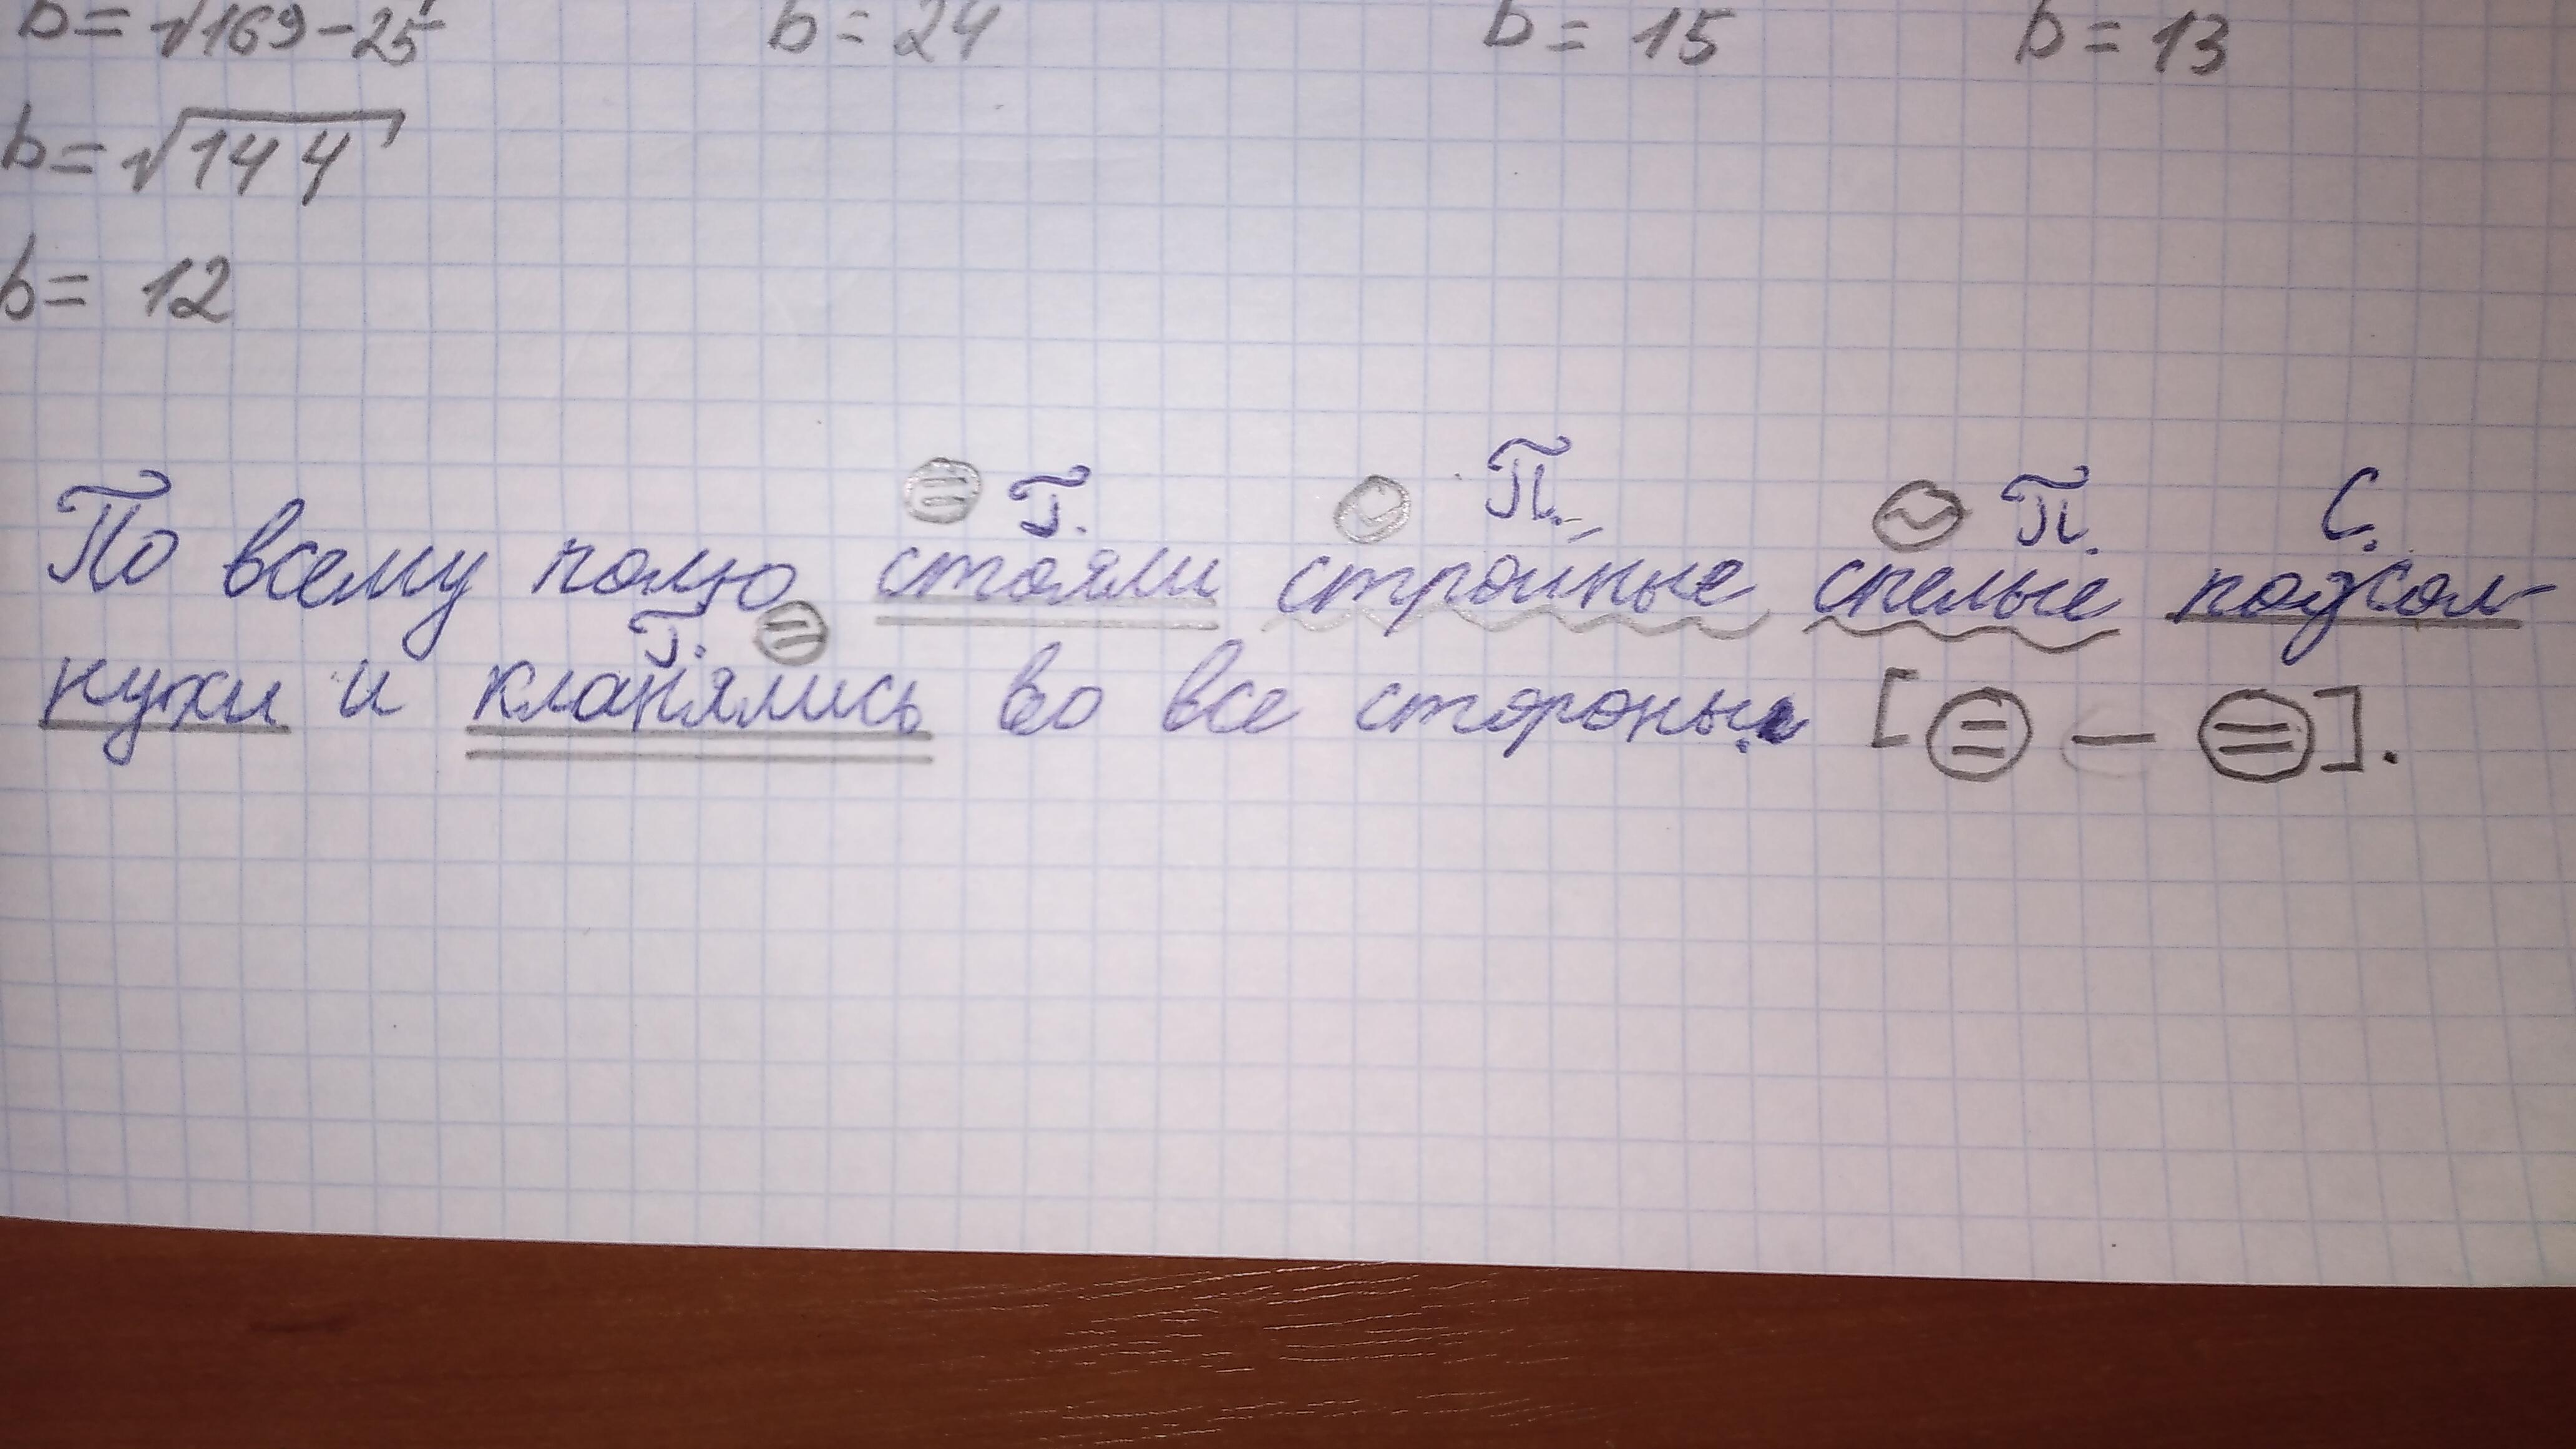 b = √169-25 b = 24 b = 15 b = 13
b = √144
b = 12
Г. П. П. С.
По всему полю стояли стройные спелые подсол-
Г.
нухи и кланялись во все стороны. [= — =].